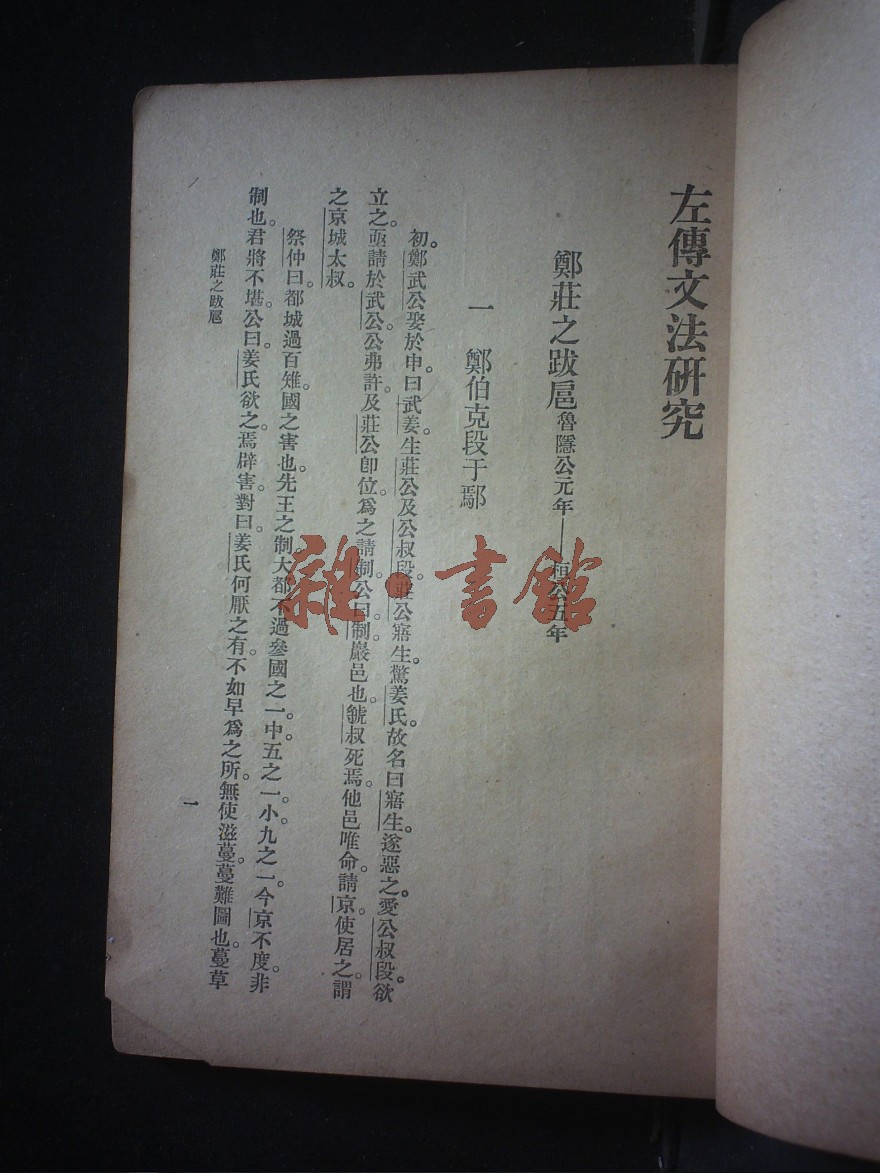 左傳文法研究
鄭莊之跋扈魯隱公元年——桓公五年
一 鄭伯克段于鄢
初。鄭武公娶於申。曰武姜。生莊公及公叔段。莊公寤生。驚姜氏。故名曰寤生。遂惡之。愛公叔段。欲
立之。亟請於武公。公弗許。及莊公卽位。爲之請制。公曰。制。巖邑也。虢叔死焉。他邑唯命。請京。使居之。謂
之京城太叔。
祭仲曰。都城過百雉。國之害也。先王之制。大都不過參國之一。中五之一。小九之一。今京不度。非
制也。君將不堪。公曰。姜氏欲之。焉辟害。對曰。姜氏何厭之有。不如早爲之所。無使滋蔓。蔓難圖也。蔓草
鄭莊之跋扈
一
雜·書館